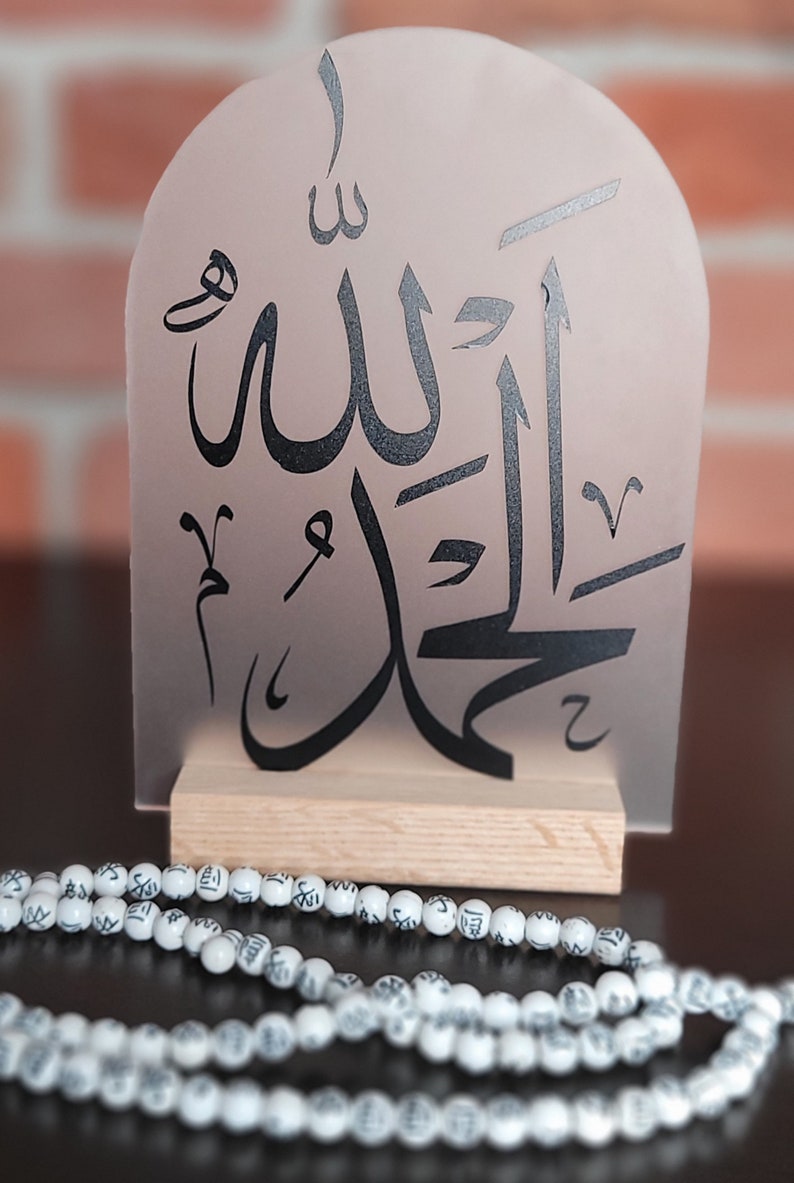 الحمد
لله